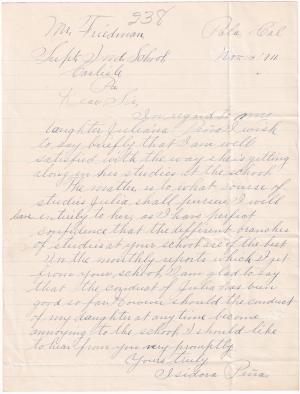 238
Mr. Friedman Pala Cal
Supt Ind School Nov
Carlisle
Pa
Dear Sir,
In regard to my
daughter Juliana Pena I wish
to say briefly that I am well
satisfied with the way she is getting
along in her studies at the school
The matter is to what course of
studies Julia shall pursue I will
leave entirely to her, as I have perfect
confidence that the different branches
of studies at your school are of the best
In the monthly reports which I get
from your school I am glad to say
that the conduct of Julia has been
good so far However should the conduct
of my daughter at any time become
annoying to the school I should like
to hear from you very promptly
Yours truly
Isidora Pena